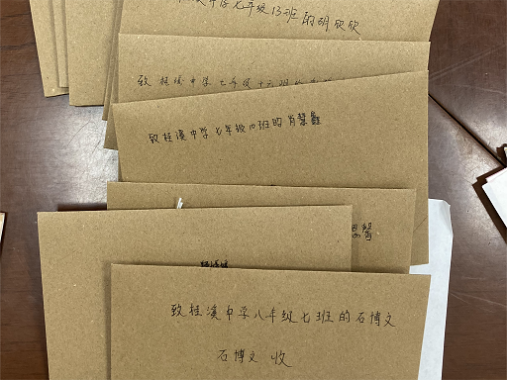 溪中学七年级13班的胡欣欣
致桂溪中学七年级十六班的
致桂溪中学七年级四班的肖
致桂溪中学八年级七班的石博文
石博文 收